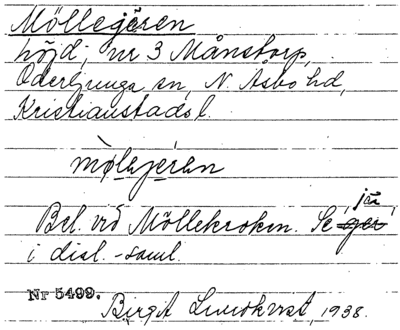 Möllegären
höjd; nr 3 Månstorp,
Oderljunga sn, N. Åsbo hd,
Kristianstads l.
mø̀lejeren
Bel. vid Möllekroken. Se ger jär
i dial.-saml.
Nr 5499.
Birgit Lundkvist, 1938.